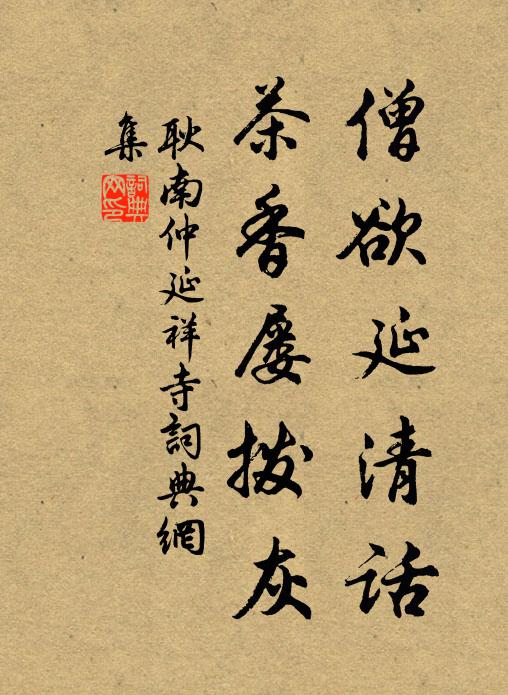 僧欲延清話
茶香屢拨灰
耿南仲延祥寺詞典網
集
詞典网印